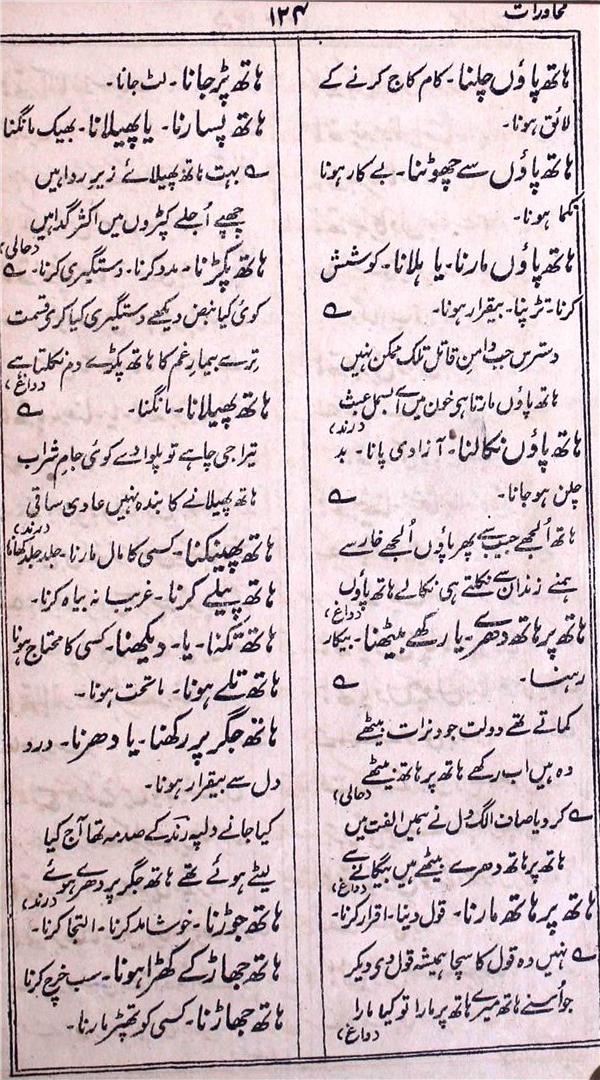 محاورات
۱۲۴
ہاتھ پاؤں چلنا۔ کام کاج کرنے کے
لائق ہونا۔
ہاتھ پاؤں سے چھوٹنا۔ بے کار ہونا
نکما ہونا۔
ہاتھ پاؤں مارنا۔ یا ہلانا۔ کوشش
کرنا۔ تڑپنا۔ بیقرار ہونا۔ ؎
دسترس جب دامنِ قاتل تلک ممکن نہیں
ہاتھ پاؤں مارتا ہی خون میں اے بسمل عبث
(رند)
ہاتھ پاؤں نکالنا۔ آزادی پانا۔ بد
چلن ہوجانا۔ ؎
ہاتھ اُلجھے جیب سے پھر پاؤں اُلجھے خار سے
ہمنے زندان سے نکلتے ہی نکالے ہاتھ پاؤں
(داغ)
ہاتھ پر ہاتھ دھرے۔ یا رکھے بیٹھنا۔ بیکار
رہنا۔ ؎
کماتے تھے دولت جو دنرات بیٹھے
وہ ہیں اب رکھے ہاتھ پر ہاتھ بیٹھے
(حالی)
؎ کردیا صاف الگ دل نے ہمیں الفت میں
ہاتھ پر ہاتھ دھرے بیٹھے ہیں بیگانے سے
(داغ)
ہاتھ پر ہاتھ مارنا۔ قول دینا۔ اقرار کرنا۔
؎ نہیں وہ قول کا سچا ہمیشہ قول دی دیکر
جو اُسنے ہاتھ میرے ہاتھ پر مارا تو کیا مارا
(داغ)
ہاتھ پڑجانا۔ لٹ جانا۔
ہاتھ پسارنا۔ یا پھیلانا۔ بھیک مانگنا
؎ بہت ہاتھ پھیلائے زیرِ ردا ہیں
چھپے اُجلے کپڑوں میں اکثر گدا ہیں
(حالی)
ہاتھ پکڑنا۔ مدد کرنا۔ دستگیری کرنا۔ ؎
کوئی کیا نبض دیکھے دستگیری کیا کری قسمت
ترے بیمارِ غم کا ہاتھ پکڑے دم نکلتا ہے
(داغ)
ہاتھ پھیلانا۔ مانگنا۔ ؎
تیرا جی چاہے تو پلوا دے کوئی جامِ شراب
ہاتھ پھیلانے کا بندہ نہیں عادی ساقی
(رند)
ہاتھ پھینکنا۔ کسی کا مال مارنا۔ جلد جلد کھانا
ہاتھ پیلے کرنا۔ غریبانہ بیاہ کرنا۔
ہاتھ تکنا۔ یا۔ دیکھنا۔ کسی کا محتاج ہونا
ہاتھ تلے ہونا۔ ماتحت ہونا۔
ہاتھ جگر پر رکھنا۔ یا دھرنا۔ درد
دل سے بیقرار ہونا۔
کیا جانے دلپہ رند کے صدمہ تھا آج کیا
لیٹے ہوئے تھے ہاتھ جگر پر دھرے ہوئے
(رند)
ہاتھ جوڑنا۔ خوشامد کرنا۔ التجا کرنا۔
ہاتھ جھاڑ کے کھڑا ہونا۔ سب خرچ کرنا
ہاتھ جھاڑنا۔ کسی کو تھپڑ مارنا۔